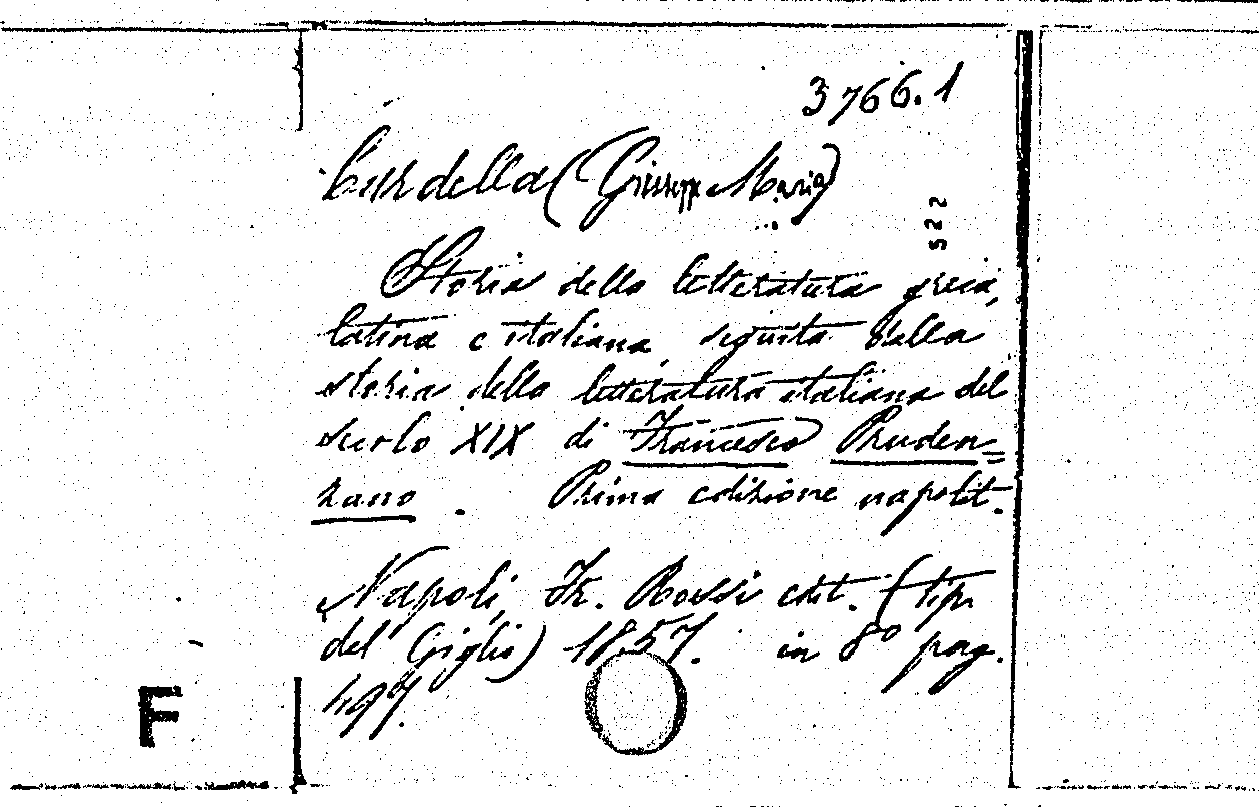 3766.1
Cardella (Giuseppe Maria)
522
Storia della letteratura greca,
latina e italiana, seguita dalla
storia della letteratura italiana del
secolo XIX di Francesco Pruden=
zano. Prima edizione napolit.
Napoli, Fr. Rossi edit. (tip.
del Giglio) 1857. in 8º pag.
497.
F